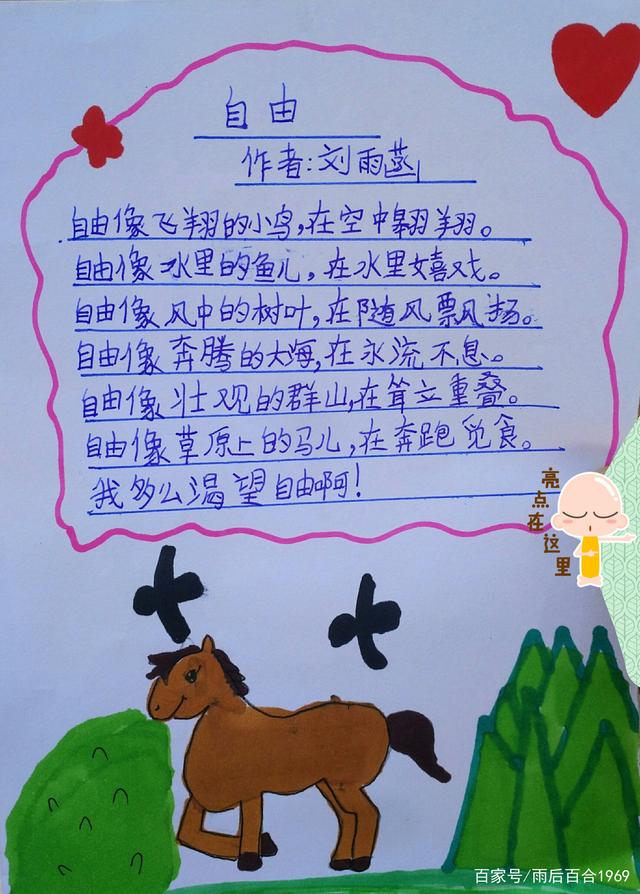 自由
作者:刘雨
自由像飞翔的小鸟,在空中翱翔。
自由像水里的鱼儿,在水里嬉戏。
自由像风中的树叶,在随风飘扬。
自由像奔腾的大海,在永流不息。
自由像壮观的群山,在耸立重叠。
自由像草原上的马儿,在奔跑觅食。
我多么渴望自由啊!
亮点在这里
百家号/雨后百合1969